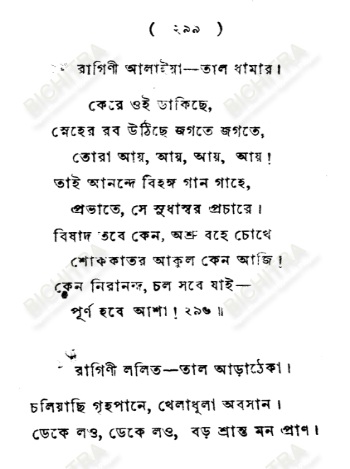 ( ২৯৯ )
রাগিণী আলাইয়া—তাল ধামার।
কেরে ওই ডাকিছে,
স্নেহের রব উঠিছে জগতে জগতে,
তোরা আয়, আয়, আয়, আয়!
তাই আনন্দে বিহঙ্গ গান গাহে,
প্রভাতে, সে সুধাস্বর প্রচারে।
বিষাদ তবে কেন, অশ্রু বহে চোখে
শোককাতর আকুল কেন আজি!
কেন নিরানন্দ, চল সবে যাই—
পূর্ণ হবে আশা! ২৯৬॥
রাগিণী ললিত—তাল আড়াঠেকা।
চলিয়াছি গৃহপানে, খেলাধুলা অবসান।
ডেকে লও, ডেকে লও, বড় শ্রান্ত মন প্রাণ।
BICHITRA